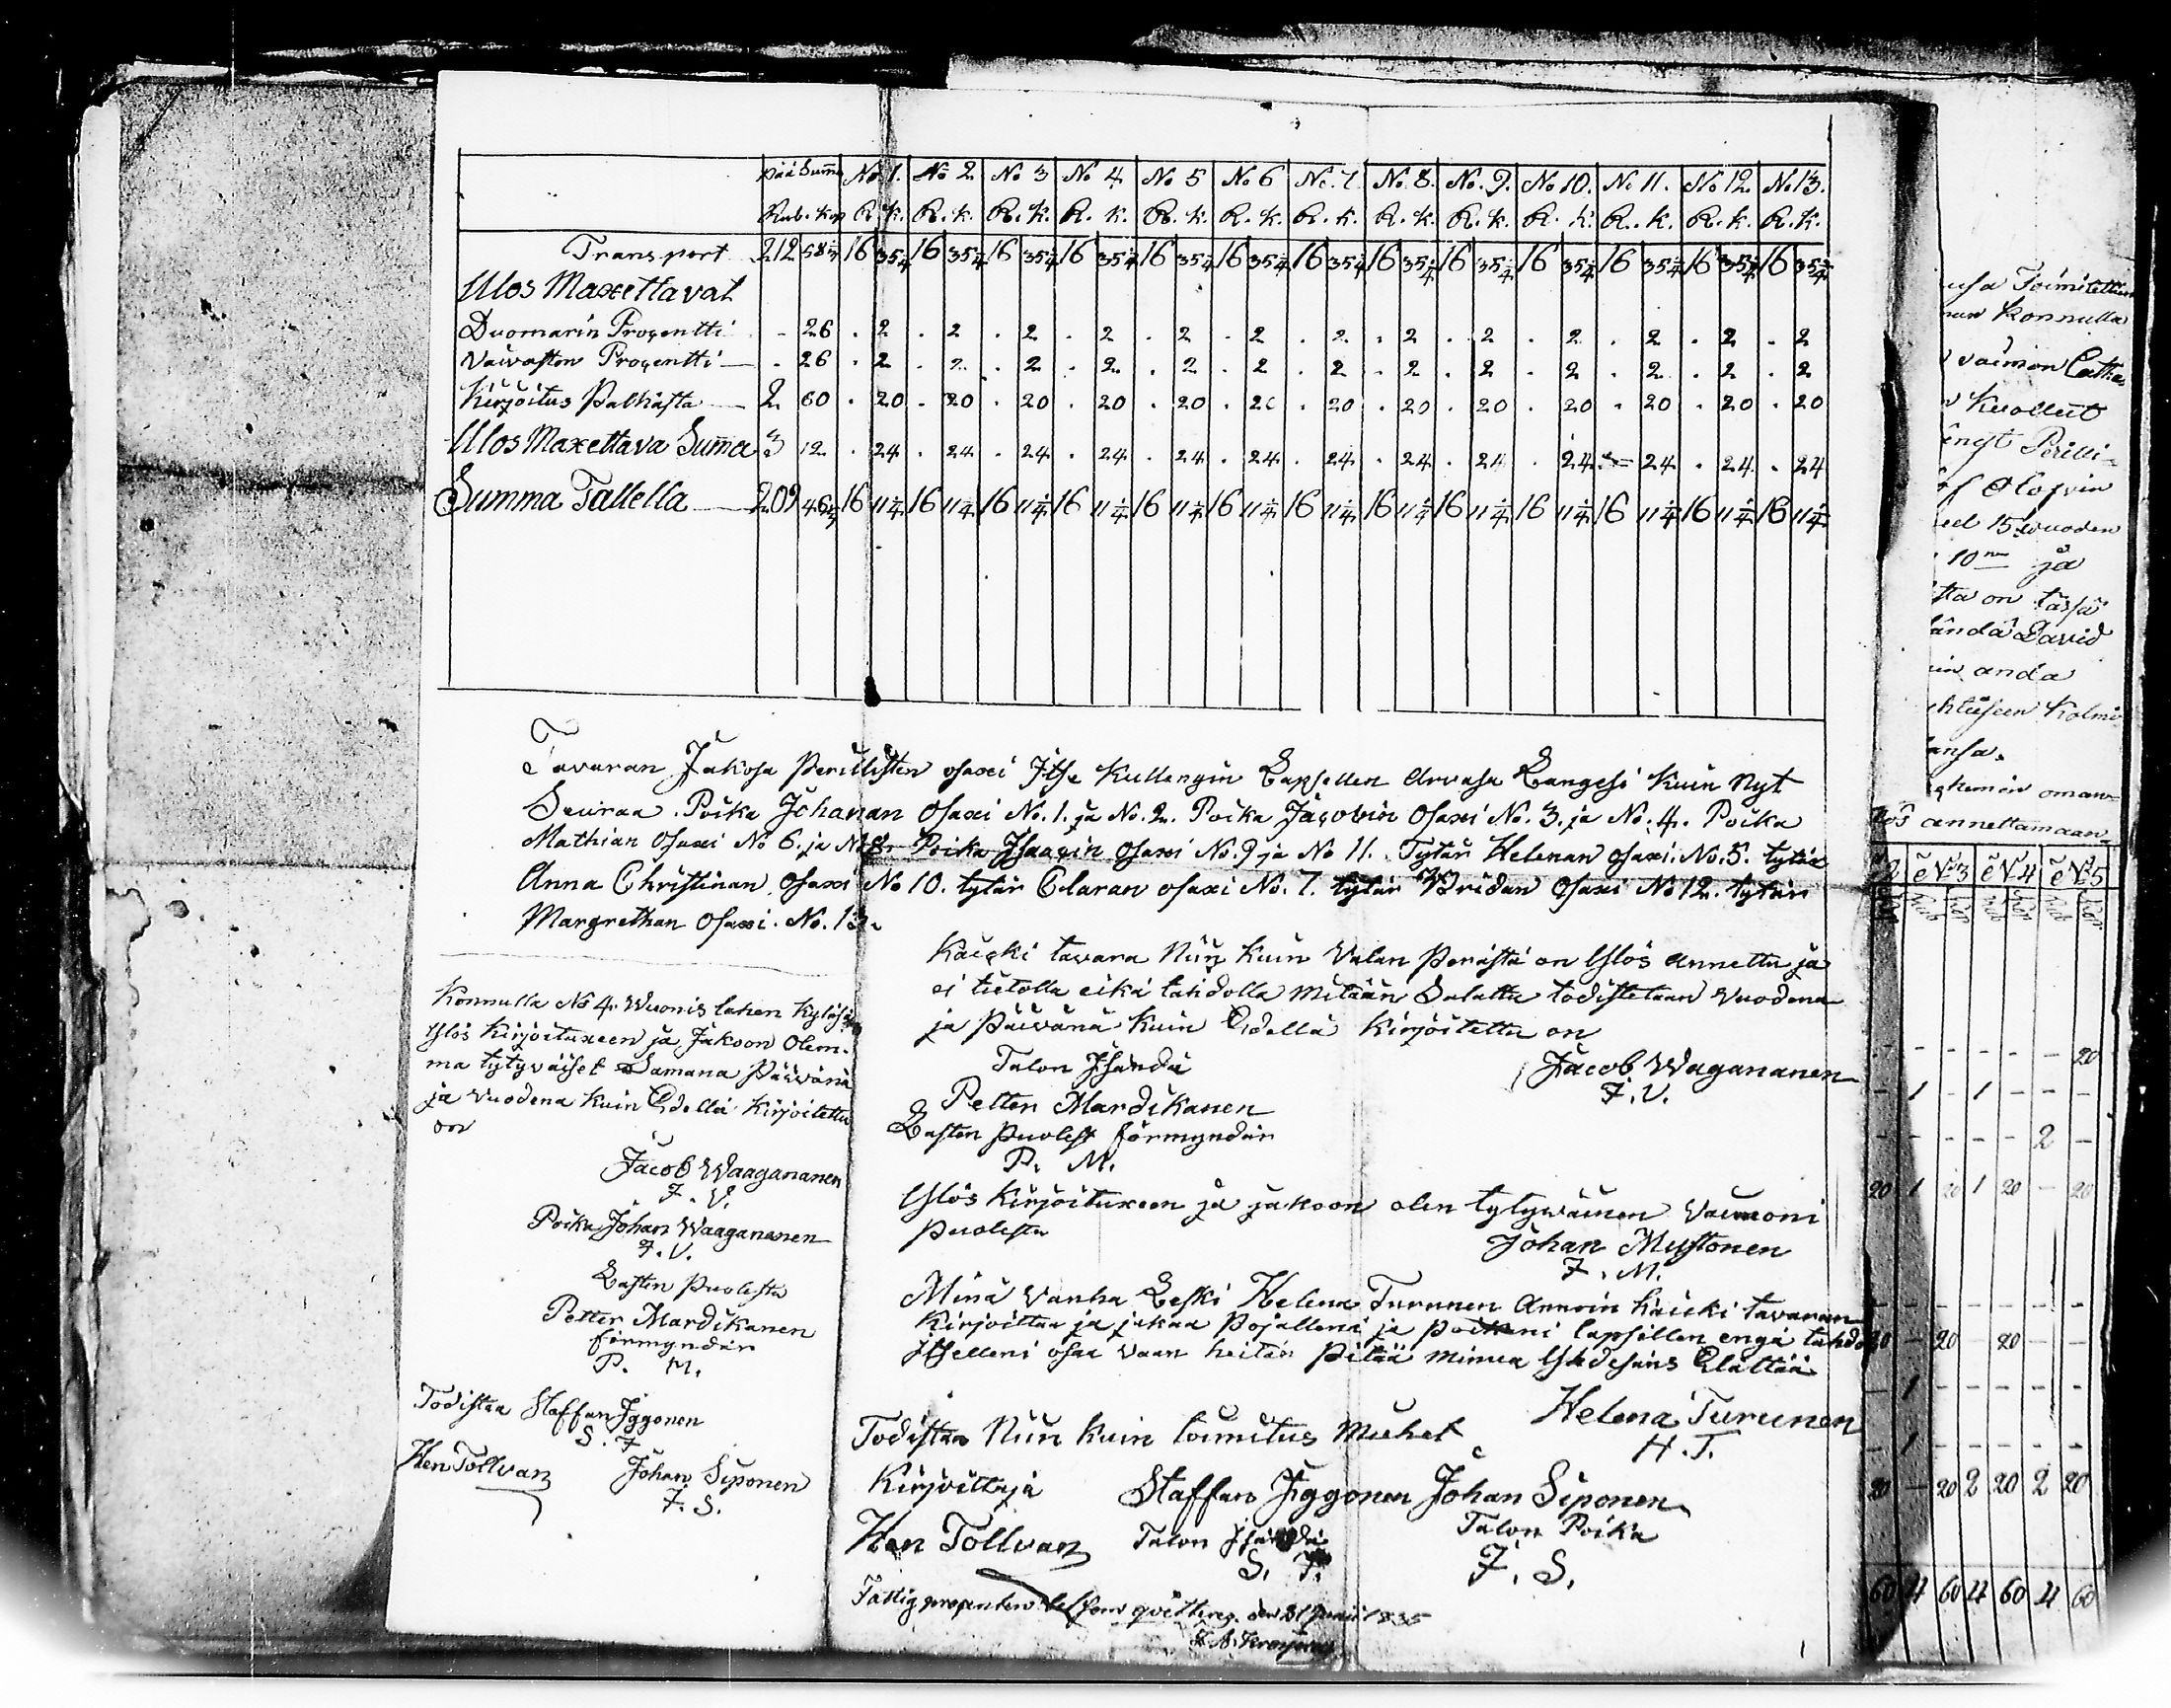 Pää Sum̃a No 1. No 2 No 3 No 4 No 5 No 6 No. 7. No. 8. No. 9. No 10. No 11. No 12. No 13.
Rub. Kop R. k. R. k. R. k. R. k. R. k. R. k. R. k. R. k. R. k. R. k. R. k. R. k. R. k.
Transport 212 58 1/4 16 35 1/4 16 35 1/4 16 35 1/4 16 35 1/4 16 35 1/4 16 35 1/4 16 35 1/4 16 35 1/4 16 35 1/4 16 35 1/4 16 35 1/4 16 35 1/4 16 35 1/4
Ulos Maxettavat
Duomarin Proçentti - 26 . 2 . 2 . 2 . 2 . 2 . 2 . 2 . 2 . 2 . 2 . 2 . 2 . 2
Vaivasten Proçentti — . 26 . 2 . 2 . 2 . 2 . 2 . 2 . 2 . 2 . 2 . 2 . 2 . 2 . 2
Kirjoitus Palkasta — 2 60 . 20 . 20 . 20 . 20 . 20 . 20 . 20 . 20 . 20 . 20 . 20 . 20 . 20
Ulos Maxettava Sum̃a 3 12 . 24 . 24 . 24 . 24 . 24 . 24 . 24 . 24 . 24 . 24 . 24 . 24 . 24
Summa Tallella — 209 46 1/4 16 11 1/4 16 11 1/4 16 11 1/4 16 11 1/4 16 11 1/4 16 11 1/4 16 11 1/4 16 11 1/4 16 11 1/4 16 11 1/4 16 11 1/4 16 11 1/4 16 11 1/4
Tavaran Jakosa Perillisten osaxi Itse Kullengin Lapsellen Arvasa Langesi Kuin Nyt
Seuraa. Poika Johanan Osaxi No. 1. ja No. 2. Poika Jaçobin Osaxi No. 3. ja No. 4. Poika
Mathian Osaxi No 6. ja No 8. Poika Isaaçin Osaxi No. 9 ja No 11. Tytär Helenan osaxi. No. 5. tytär
Anna Christinan Osaxi No 10. tytär Claran osaxi No. 7. tytär Bridan Osaxi No 12. tytär
Margrethan Osaxi. No. 13.
Kaiçki tavara Niin Kuin Valan Perästä on Ylös annettu ja
ei tietolla eikä tahdolla Mitään Salattu todistetaan Vuodena
ja Päivänä Kuin Edellä Kirjoitettu on
Talon Isändä Jacob Wagananen
J. V.
Petter Mardikanen
Lasten Puolest förmyndär
P. M.
Ylös Kirjoituxeen ja jakoon olen tytywäinen Vaimoni
Puolesta
Johan Mustonen
J. M.
Minä Vanha Leski Helena Turunen Annoin Kaicki tavaran
Kirjoittaa ja jakaa Pojalleni ja Poikani lapsillen engä tahdo
itselleni osaa Vaan heitän Pitää minua Yhdesäns Elättää
Helena Turunen
H. T.
Todistaa Niin Kuin toimitus Miehet
Kirjoittaja Staffan Iggonen Johan Siponen
Hen Tollvan Talon Isändä Talon Poika
S. I. J. S.
Fattig procenten qvitteras den 31 1835
Konnulla No 4. Wuonislahen Kyläsä
Ylös Kirjoituxeen ja Jakoon Olem-
ma tytyväiset Samana Päivänä
ja Vuodena Kuin Edellä Kirjoitettu
on
Jacob Waagananen
J. V.
Poika Johan Waagananen
J. V.
Lasten Puolesta
Petter Mardikanen
förmyndär
P. M.
Todistaa Staffan Iggonen
S. I
Hen Tollvan Johan Siponen
J. S.
Toimitettu
Konnulla
vaimon Catha
Kuollut
Perilli-
Olofvin
15 vuoden
10 ja
on täsä
David
anda
Kolme
oman
annettamaan
No 3 No 4 No 5
- - - - - 20
- 1 - 1 - - -
- - - - - 2 -
20 1 20 1 20 - 20
- - - - - - -
20 - 20 - 20 - -
- 1 - - - - -
- 1 - - - - -
20 - 20 2 20 2 20
60 4 60 4 60 4 60